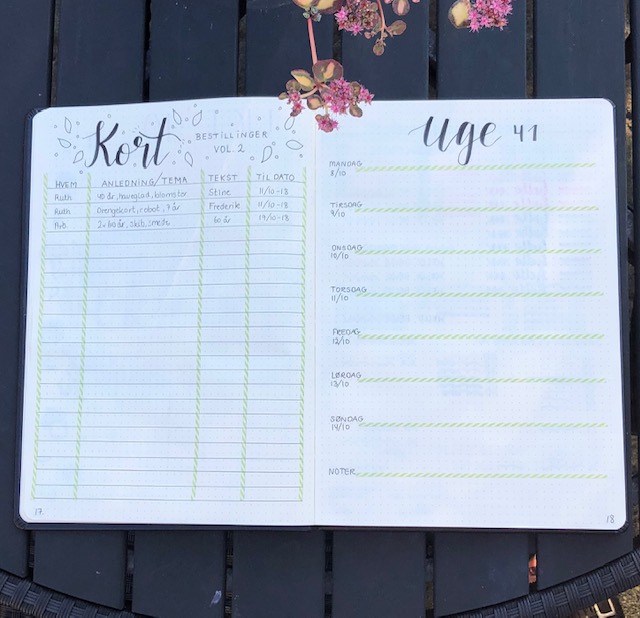 Kort
BESTILLINGER
VOL. 2
HVEM ANLEDNING/TEMA TEKST TIL DATO
Ruth 40 år, haveglad, blomster Stine 11/10-18
Ruth Drengekort, robot, 7 år Frederik 11/10-18
2x 60 år, skib, smede 60 år 19/10-18
17.
Uge 41
MANDAG
8/10
TIRSDAG
9/10
ONSDAG
10/10
TORSDAG
11/10
FREDAG
12/10
LØRDAG
13/10
SØNDAG
14/10
NOTER
18